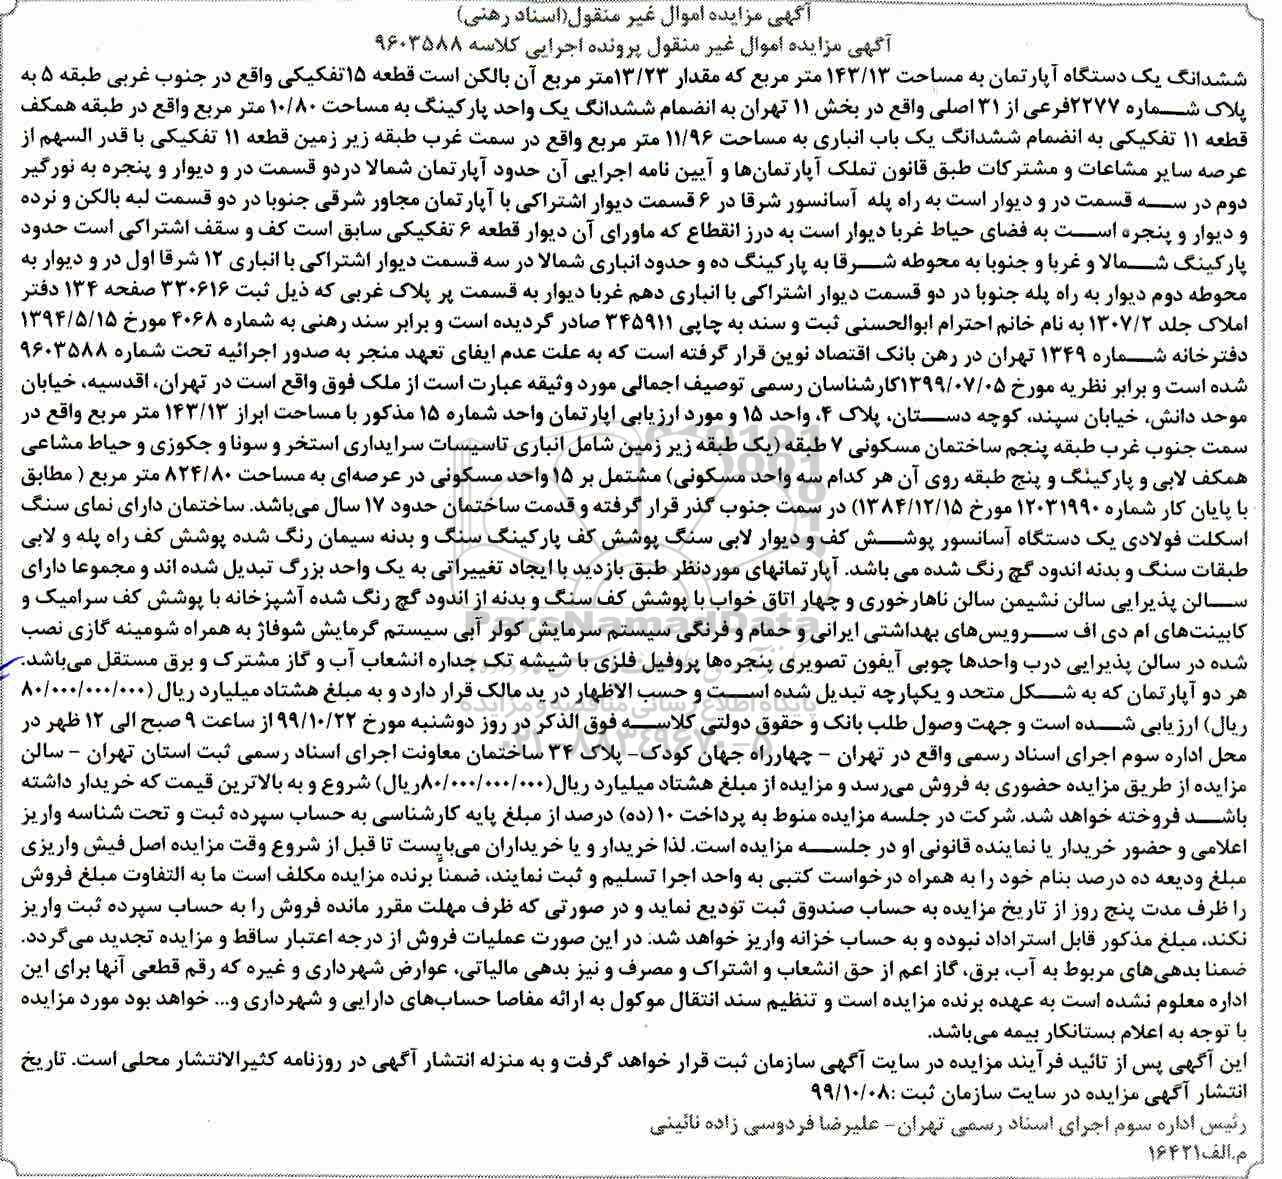 آگهی مزایده اموال غیر منقول(اسناد رهنی)
آگهی مزایده اموال غیر منقول پرونده اجرایی کلاسه ۹۶۰۳۵۸۸
ششدانگ یک دستگاه آپارتمان به مساحت ۱۴۳/۱۳ متر مربع که مقدار ۱۳/۲۳متر مربع آن بالکن است قطعه ۱۵تفکیکی واقع در جنوب غربی طبقه ۵ به
پلاک شماره ۲۲۷۷فرعی از ۳۱ اصلی واقع در بخش ۱۱ تهران به انضمام ششدانگ یک واحد پارکینگ به مساحت ۱۰/۸۰ متر مربع واقع در طبقه همکف
قطعه ۱۱ تفکیکی به انضمام ششدانگ یک باب انباری به مساحت ۱۱/۹۶ متر مربع واقع در سمت غرب طبقه زیر زمین قطعه ۱۱ تفکیکی با قدر السهم از
عرصه سایر مشاعات و مشترکات طبق قانون تملک آپارتمان‌ها و آیین نامه اجرایی آن حدود آپارتمان شمالا دردو قسمت در و دیوار و پنجره به نورگیر
دوم در سه قسمت در و دیوار است به راه پله آسانسور شرقا در ۶ قسمت دیوار اشتراکی با آپارتمان مجاور شرقی جنوبا در دو قسمت لبه بالکن و نرده
و دیوار و پنجره است به فضای حیاط غربا دیوار است به درز انقطاع که ماورای آن دیوار قطعه ۶ تفکیکی سابق است کف و سقف اشتراکی است حدود
پارکینگ شمالا و غربا و جنوبا به محوطه شرقا به پارکینگ ده و حدود انباری شمالا در سه قسمت دیوار اشتراکی با انباری ۱۲ شرقا اول در و دیوار به
محوطه دوم دیوار به راه پله جنوبا در دو قسمت دیوار اشتراکی با انباری دهم غربا دیوار به قسمت پر پلاک غربی که ذیل ثبت ۳۳۰۶۱۶ صفحه ۱۳۴ دفتر
املاک جلد ۱۳۰۷/۲ به نام خانم احترام ابوالحسنی ثبت و سند به چاپی ۳۴۵۹۱۱ صادر گردیده است و برابر سند رهنی به شماره ۴۰۶۸ مورخ ۱۳۹۴/۵/۱۵
دفترخانه شماره ۱۳۴۹ تهران در رهن بانک اقتصاد نوین قرار گرفته است که به علت عدم ایفای تعهد منجر به صدور اجرائیه تحت شماره ۹۶۰۳۵۸۸
شده است و برابر نظریه مورخ ۱۳۹۹/۰۷/۰۵کارشناسان رسمی توصیف اجمالی مورد وثیقه عبارت است از ملک فوق واقع است در تهران، اقدسیه، خیابان
موحد دانش، خیابان سپند، کوچه دستان، پلاک ۴، واحد ۱۵ و مورد ارزیابی اپارتمان واحد شماره ۱۵ مذکور با مساحت ابراز ۱۴۳/۱۳ متر مربع واقع در
سمت جنوب غرب طبقه پنجم ساختمان مسکونی ۷ طبقه (یک طبقه زیر زمین شامل انباری تاسیسات سرایداری استخر و سونا و جکوزی و حیاط مشاعی
همکف لابی و پارکینگ و پنج طبقه روی آن هر کدام سه واحد مسکونی) مشتمل بر ۱۵ واحد مسکونی در عرصه‌ای به مساحت ۸۲۴/۸۰ متر مربع ( مطابق
با پایان کار شماره ۱۲۰۳۱۹۹۰ مورخ ۱۳۸۴/۱۲/۱۵) در سمت جنوب گذر قرار گرفته و قدمت ساختمان حدود ۱۷ سال می‌باشد. ساختمان دارای نمای سنگ
اسکلت فولادی یک دستگاه آسانسور پوشش کف و دیوار لابی سنگ پوشش کف پارکینگ سنگ و بدنه سیمان رنگ شده پوشش کف راه پله و لابی
طبقات سنگ و بدنه اندود گچ رنگ شده می باشد. آپارتمانهای موردنظر طبق بازدید با ایجاد تغییراتی به یک واحد بزرگ تبدیل شده اند و مجموعا دارای
سالن پذیرایی سالن نشیمن سالن ناهارخوری و چهار اتاق خواب با پوشش کف سنگ و بدنه از اندود گچ رنگ شده آشپزخانه با پوشش کف سرامیک و
کابینت‌های ام دی اف سرویس‌های بهداشتی ایرانی و حمام و فرنگی سیستم سرمایش کولر آبی سیستم گرمایش شوفاژ به همراه شومینه گازی نصب
شده در سالن پذیرایی درب واحدها چوبی آیفون تصویری پنجره‌ها پروفیل فلزی با شیشه تک جداره انشعاب آب و گاز مشترک و برق مستقل می‌باشد.
هر دو آپارتمان که به شکل متحد و یکپارچه تبدیل شده است و حسب الاظهار در ید مالک قرار دارد و به مبلغ هشتاد میلیارد ریال (۸۰/۰۰۰/۰۰۰/۰۰۰
ریال) ارزیابی شده است و جهت وصول طلب بانک و حقوق دولتی کلاسه فوق الذکر در روز دوشنبه مورخ ۹۹/۱۰/۲۲ از ساعت ۹ صبح الی ۱۲ ظهر در
محل اداره سوم اجرای اسناد رسمی واقع در تهران – چهارراه جهان کودک– پلاک ۳۴ ساختمان معاونت اجرای اسناد رسمی ثبت استان تهران – سالن
مزایده از طریق مزایده حضوری به فروش می‌رسد و مزایده از مبلغ هشتاد میلیارد ریال(۸۰/۰۰۰/۰۰۰/۰۰۰ریال) شروع و به بالاترین قیمت که خریدار داشته
باشد فروخته خواهد شد. شرکت در جلسه مزایده منوط به پرداخت ۱۰ (ده) درصد از مبلغ پایه کارشناسی به حساب سپرده ثبت و تحت شناسه واریز
اعلامی و حضور خریدار یا نماینده قانونی او در جلسه مزایده است. لذا خریدار و یا خریداران می‌بایست تا قبل از شروع وقت مزایده اصل فیش واریزی
مبلغ ودیعه ده درصد بنام خود را به همراه درخواست کتبی به واحد اجرا تسلیم و ثبت نمایند، ضمنا برنده مزایده مکلف است ما به التفاوت مبلغ فروش
را ظرف مدت پنج روز از تاریخ مزایده به حساب صندوق ثبت تودیع نماید و در صورتی که ظرف مهلت مقرر مانده فروش را به حساب سپرده ثبت واریز
نکند، مبلغ مذکور قابل استرداد نبوده و به حساب خزانه واریز خواهد شد. در این صورت عملیات فروش از درجه اعتبار ساقط و مزایده تجدید می‌گردد.
ضمنا بدهی‌های مربوط به آب، برق، گاز اعم از حق انشعاب و اشتراک و مصرف و نیز بدهی مالیاتی، عوارض شهرداری و غیره که رقم قطعی آنها برای این
اداره معلوم نشده است به عهده برنده مزایده است و تنظیم سند انتقال موکول به ارائه مفاصا حساب‌های دارایی و شهرداری و... خواهد بود مورد مزایده
با توجه به اعلام بستانکار بیمه می‌باشد.
این آگهی پس از تائید فرآیند مزایده در سایت آگهی سازمان ثبت قرار خواهد گرفت و به منزله انتشار آگهی در روزنامه کثیرالانتشار محلی است. تاریخ
انتشار آگهی مزایده در سایت سازمان ثبت :۹۹/۱۰/۰۸
رئیس اداره سوم اجرای اسناد رسمی تهران– علیرضا فردوسی زاده نائینی
م.الف۱۶۴۲۱
ParsNamadData
پایگاه اطلاع رسانی مناقصه و مزایده